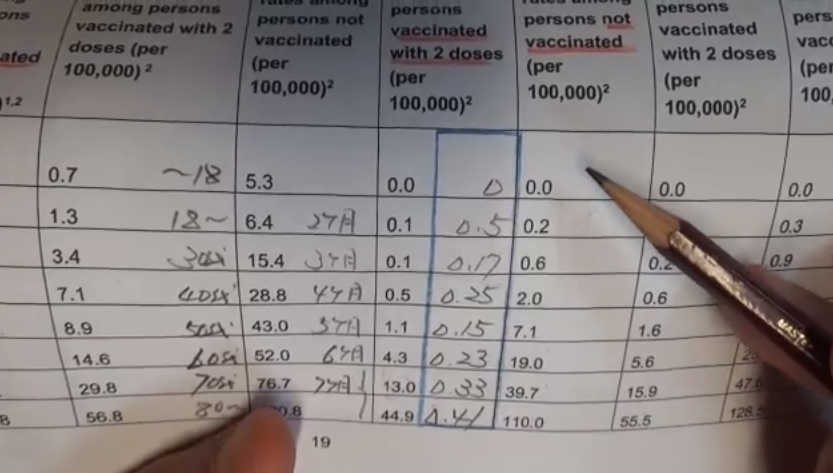 ons
among persons
vaccinated with 2
doses (per
100,000) 2
rates among
persons not
vaccinated
(per
100,000)2
persons
vaccinated
with 2 doses
(per
100,000)2
rates among
persons not
vaccinated
(per
100,000)2
persons
vaccinated
with 2 doses
(per
100,000)2
pers
vacc
(per
100,
ated
1,2
0.7 ~18 5.3 0.0 0 0.0 0.0 0.0
1.3 18~ 6.4 0.1 0.5 0.2 0.3
3.4 15.4 0.1 0.17 0.6 0.2 0.9
7.1 28.8 0.5 0.25 2.0 0.6
8.9 43.0 1.1 0.15 7.1 1.6
14.6 52.0 4.3 0.23 19.0 5.6
29.8 76.7 13.0 0.33 39.7 15.9
8 56.8 44.9 0.41 110.0 55.5
19